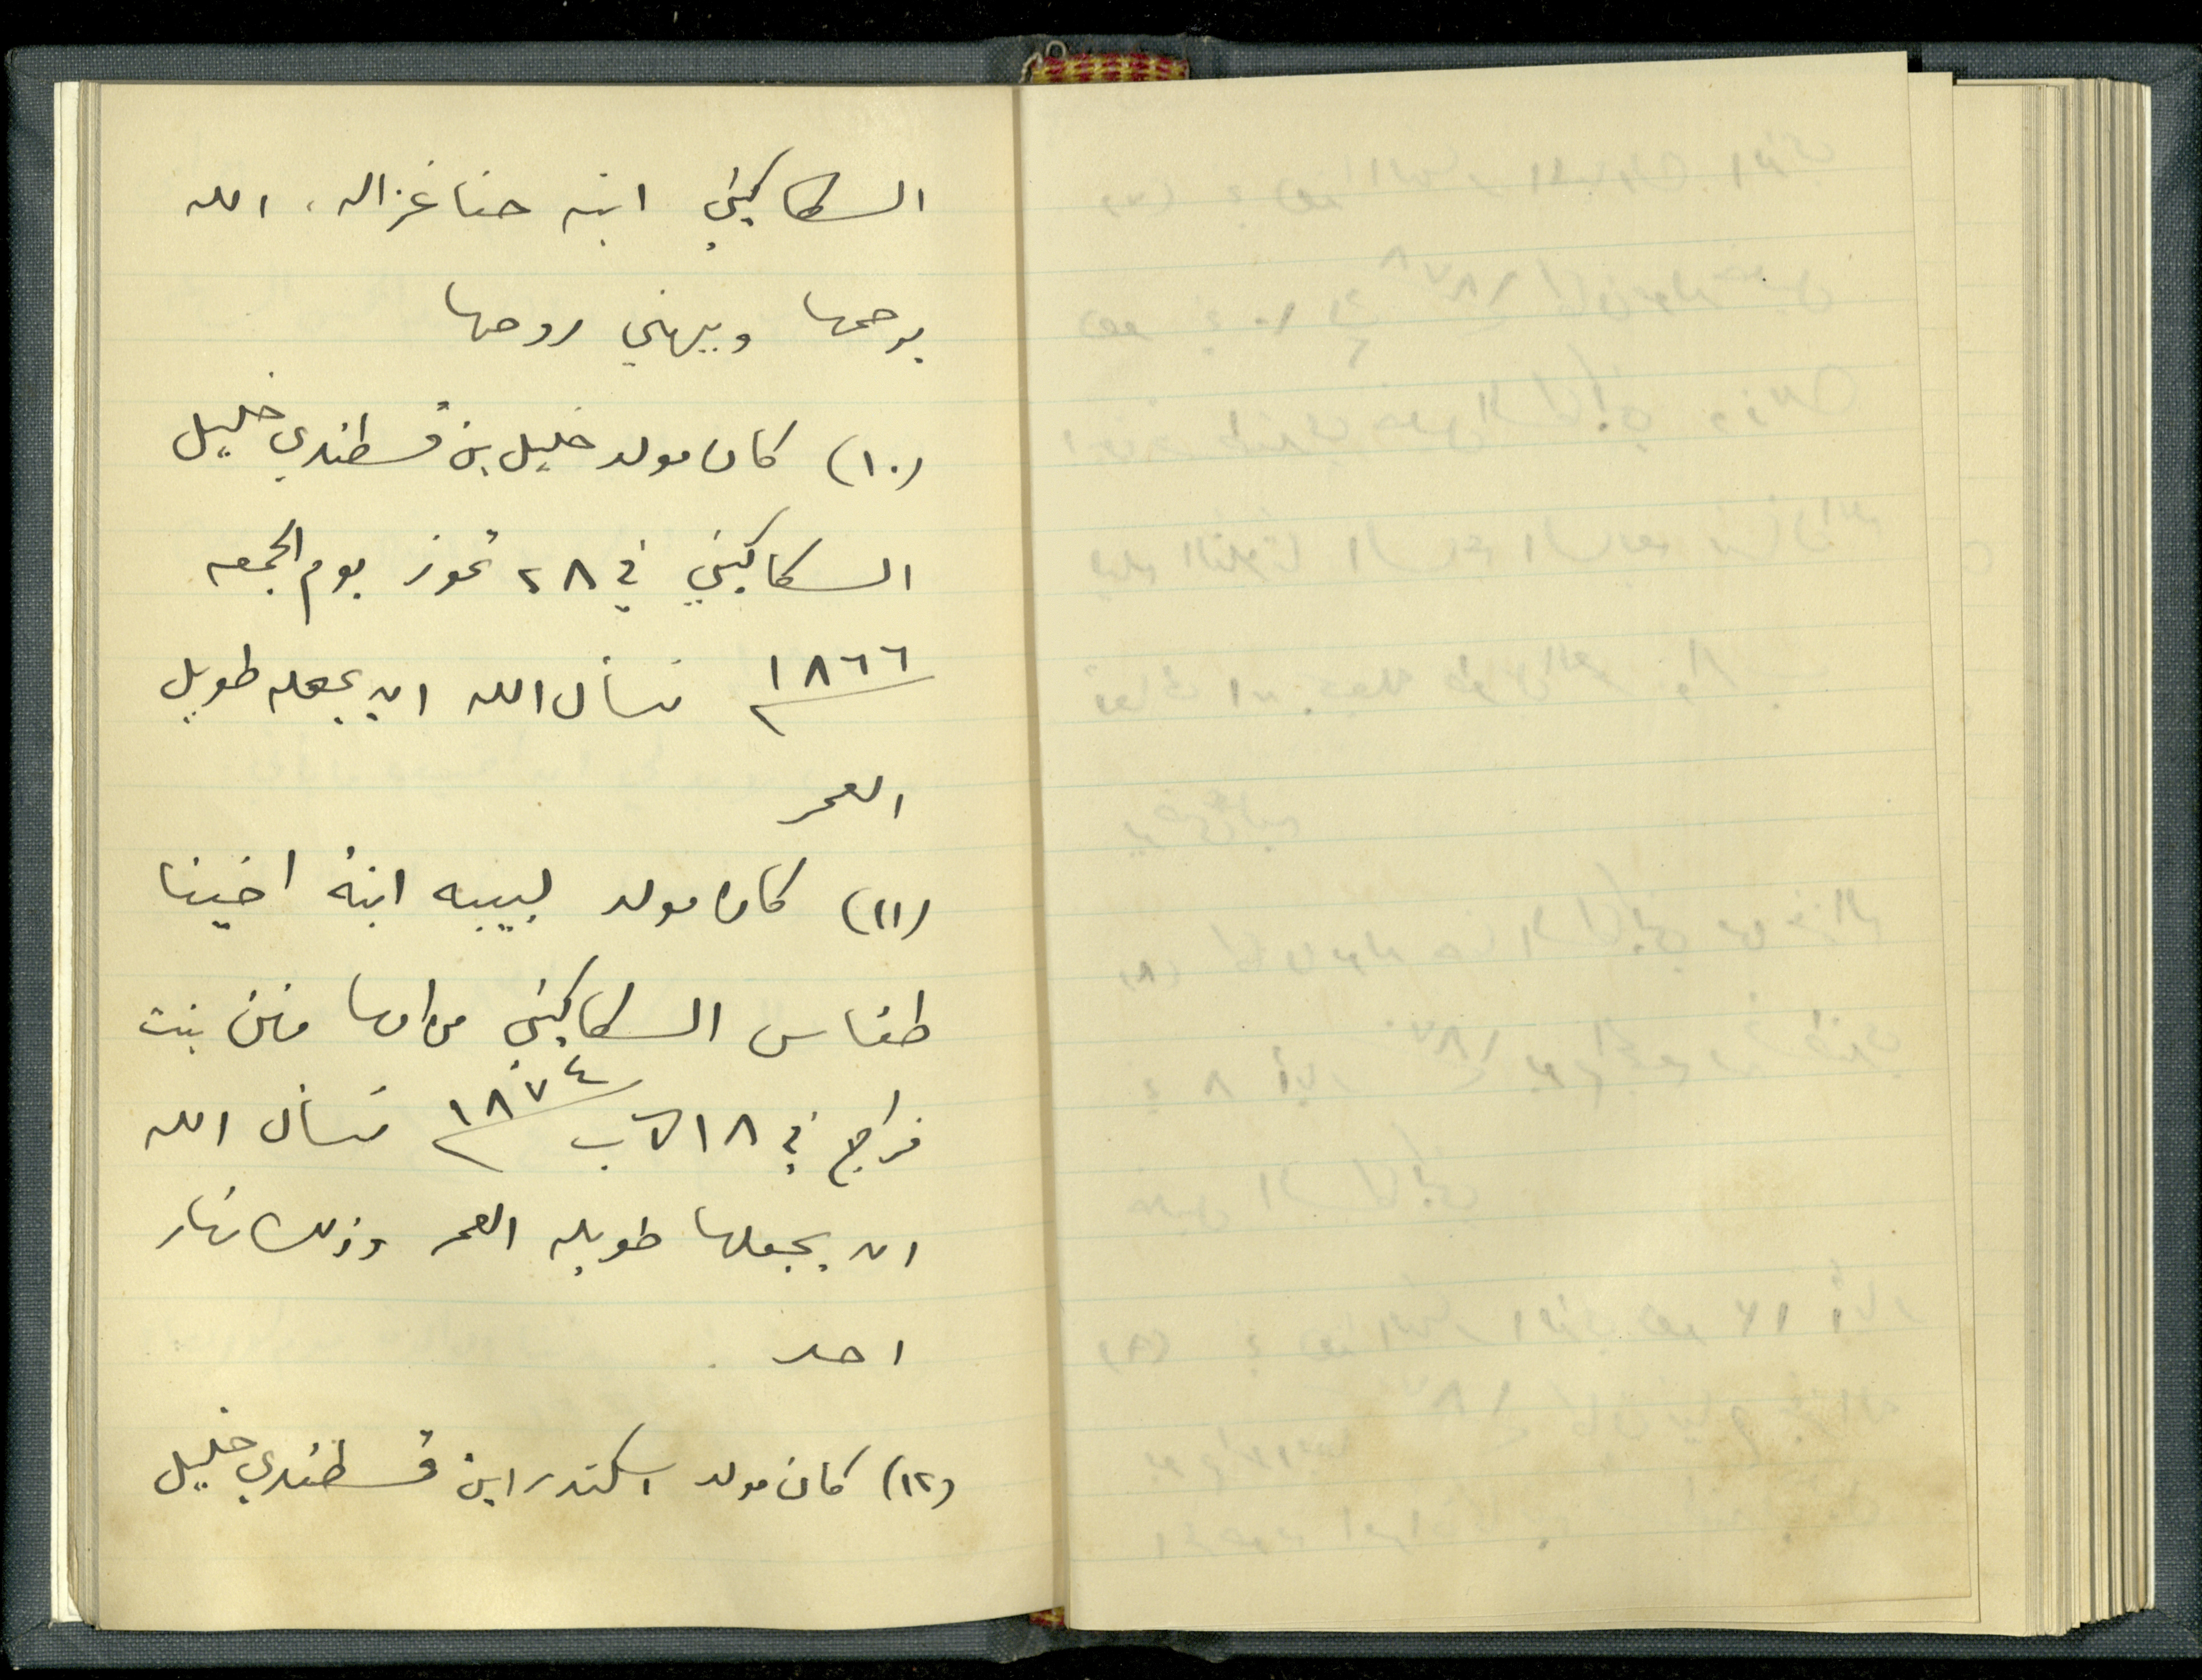 السكاكيني ابنة حنا غزاله، الله
يرحمها ويهني روحها
(١٠) كان مولد خليل بن قسطندي خليل
السكاكيني في ٢٨ تموز يوم الجمعه
١٨٦٦ نسأل الله ان يجعله طويل
العمر
(١١) كان مولد لبيبه ابنة اخينا
طناس السكاكيني من امها بنت
فراج في ١٨ آب ١٨٧٤ نسأل الله
ان يجعلها طويلة العمر وذلك نهار
احد
(١٢) كان مولد اسكندر ابن قسطندي خليل